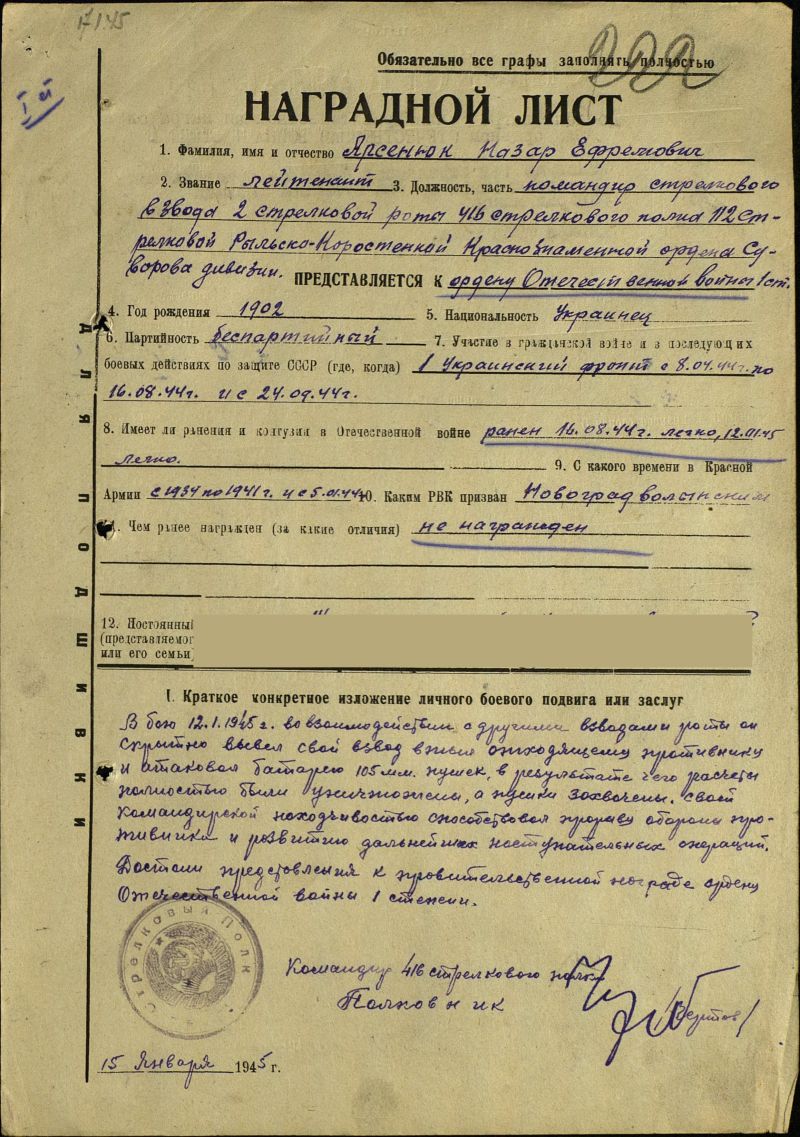 17.1.45
Обязательно все графы заполнять полностью
НАГРАДНОЙ ЛИСТ
1. Фамилия, имя и отчество Арсенюк Назар Ефремович
2. Звание лейтенант 3. Должность, часть командир стрелкового
взвода 2 стрелковой роты 416 стрелкового полка 112 ст-
релковой Рыльско-Коростенской Краснознаменной ордена Су-
ворова дивизии. ПРЕДСТАВЛЯЕТСЯ К ордену Отечественной войны 1 ст.
4. Год рождения 1902 5. Национальность Украинец
6. Партийность беспартийный 7. Участие в гражданской войне и в последующих
боевых действиях по защите СССР (где, когда) 1 Украинский фронт с 8.04.44г. по
16.08.44г. и с 24.09.44г.
8. Имеет ли ранения и контузии в Отечественной войне ранен 16.08.44г. легко, 12.01.45
легко. 9. С какого времени в Красной
Армии с 1934 по 1941г. и с 5.01.44 10. Каким РВК призван Новоградволынским
11. Чем ранее награжден (за какие отличия) не награжден
12. Постоянный
(представляемог
или его семьи)
I. Краткое конкретное изложение личного боевого подвига или заслуг
В бою 12.1.1945г. во взаимодействии с другими взводами роты он
скрытно вывел свой взвод в тыл отходящему противнику
и атаковал батарею 105 мм. пушек, в результате чего расчеты
полностью были уничтожены, а пушки захвачены. Своей
командирской находчивостью способствовал прорыву обороны про-
тивника и развитию дальнейших наступательных операций.
Достоин представления к правительственной награде ордену
Отечественной войны 1 степени.
Командир 416 стрелкового полка
Полковник
15 Января 1945 г.
Стрелковый Полк
ДЛЯ ПОДШИВКИ